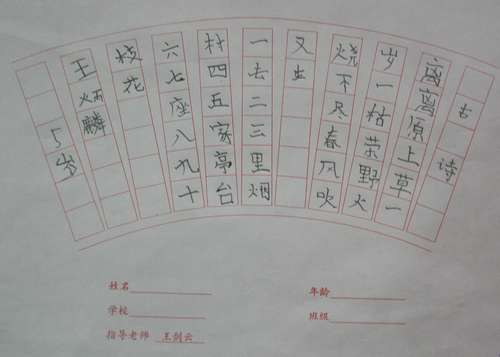 古诗
离离原上草一
岁一枯荣野火
烧不尽春风吹
又生
一去二三里烟
村四五家亭台
六七座八九十
枝花
王炳麟
5岁
姓名
年龄
学校
班级
指导老师 王剑云